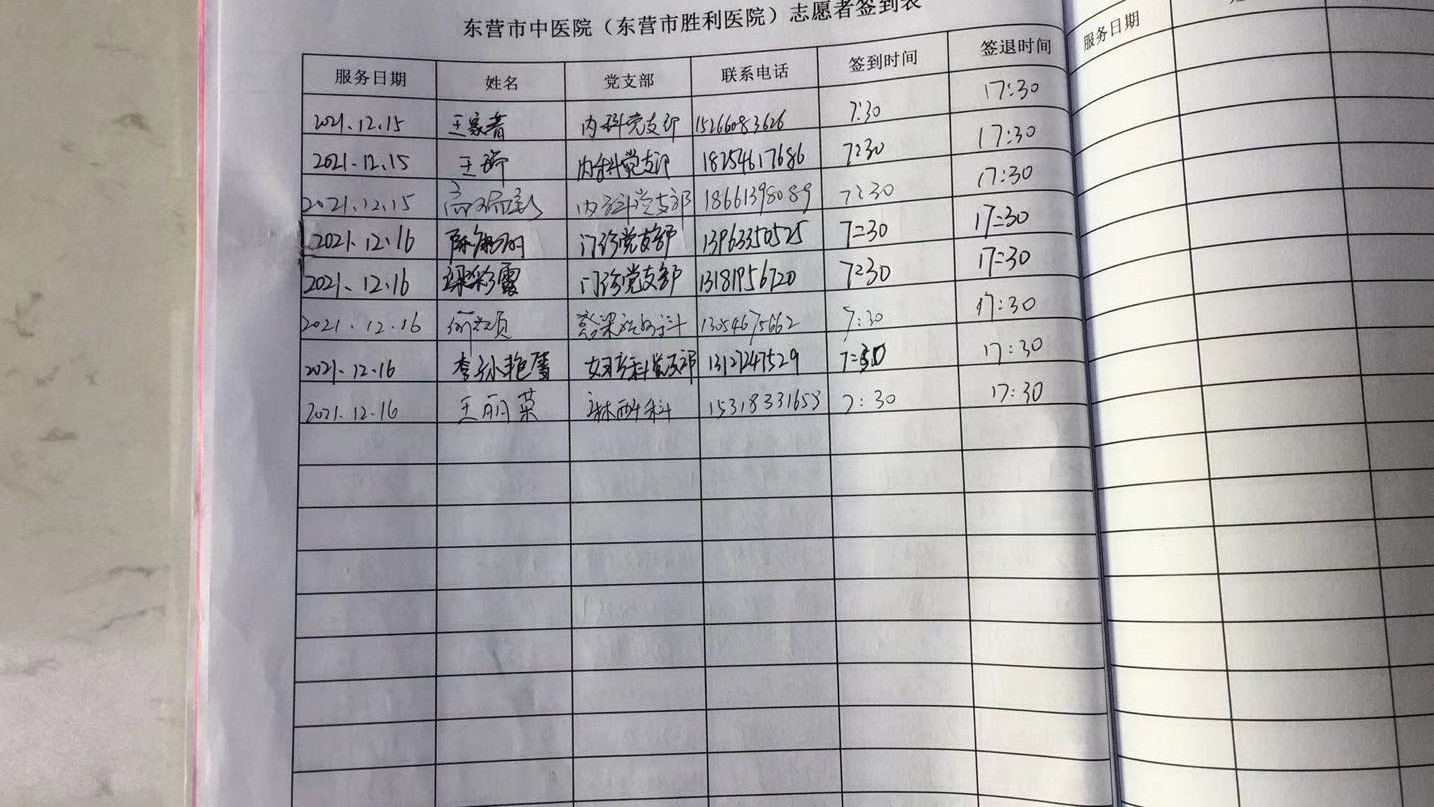 东营市中医院（东营市胜利医院）志愿者签到表
服务日期 姓名 党支部 联系电话 签到时间 签退时间 服务日期
2021.12.15 王家青 内科党支部 15266083626 7:30 17:30
2021.12.15 王娇 内科党支部 18254617686 7:30 17:30
2021.12.15 内科党支部 18661398089 7:30 17:30
2021.12.16 门诊党支部 13963350525 7:30 17:30
2021.12.16 梁彩霞 门诊党支部 13181956720 7:30 17:30
2021.12.16 13054675662 7:30 17:30
2021.12.16 妇产科党支部 17:30
2021.12.16 王丽菜 麻醉科 15318331653 7:30 17:30